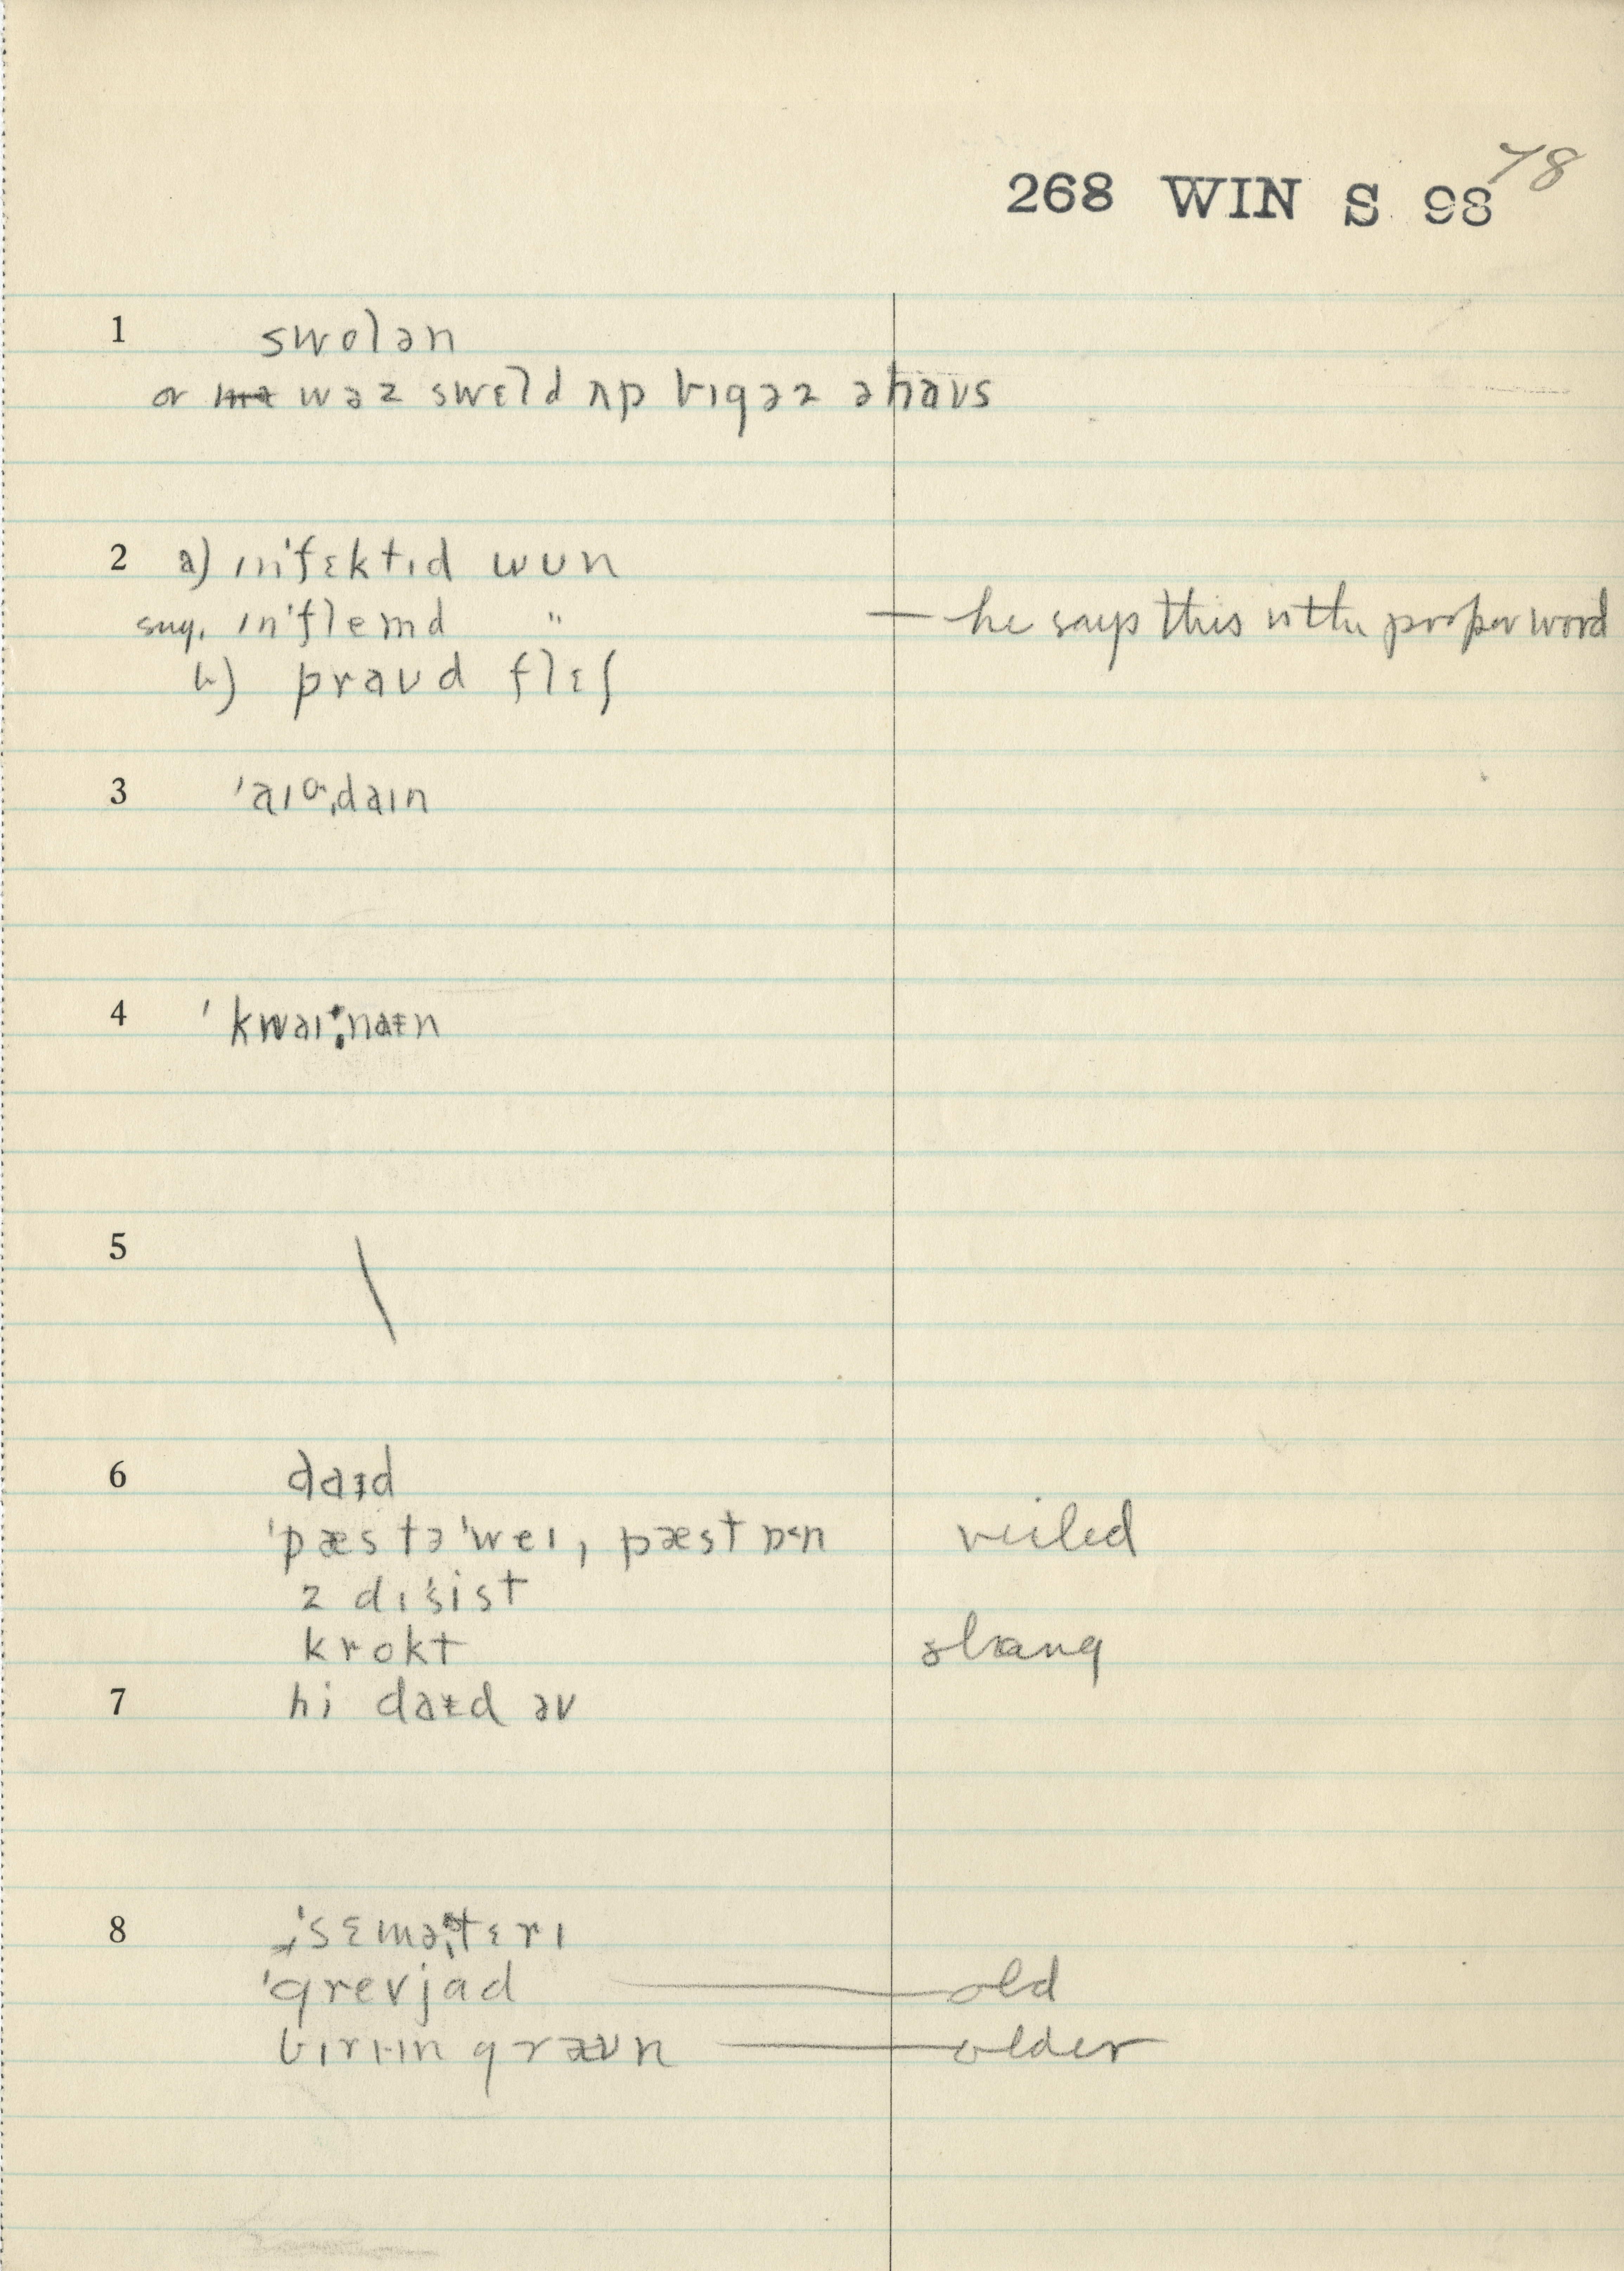 78
268 WIN S 98
1 swolən
or wəz swɛld ʌp bɪg əz ə haʊs
2 a) ɪn'fɛktɪd wun
sug. ɪn'flemd " — he says this is the proper word
b) praʊd flɛʃ
3 'aɪə,daɪn
4 'kwaɪ,naɪn
5 \
6 daɪd
'pæst ə'weɪ, pæst ɒn veiled
z dɪ'sist
krokt slang
7 hi daɪd əv
8 'sɛmə,tɛrɪ
'grevjad — old
bɪrɪɪn graʊn — older